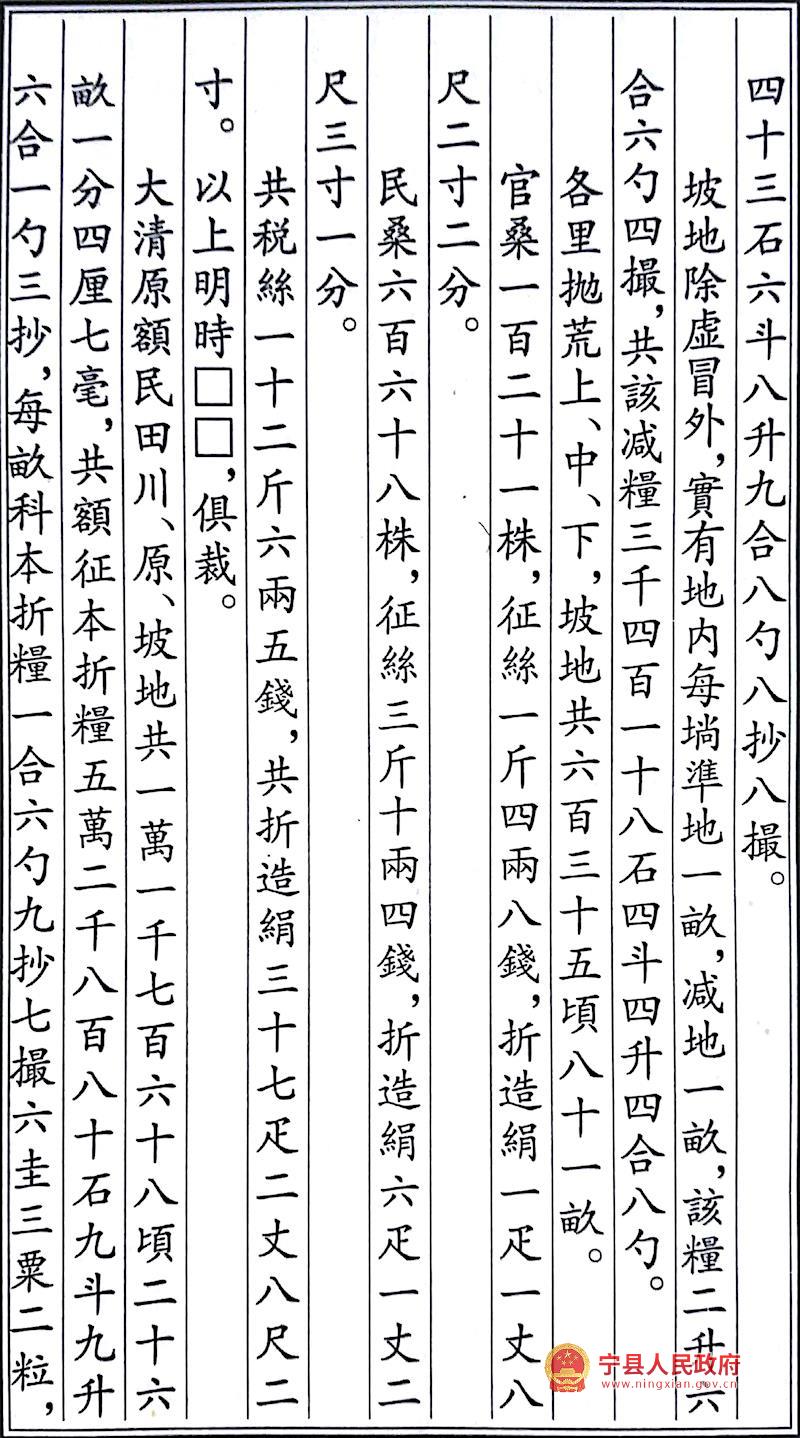 四十三石六斗八升九合八勺八抄八撮。
坡地除虛冒外，實有地内每埫準地一畝，减地一畝，該糧二升六
合六勺四撮，共該减糧三千四百一十八石四斗四升四合八勺。
各里抛荒上、中、下，坡地共六百三十五頃八十一畝。
官桑一百二十一株，征絲一斤四兩八錢，折造絹一疋一丈八
尺二寸二分。
民桑六百六十八株，征絲三斤十兩四錢，折造絹六疋一丈二
尺三寸一分。
共税絲一十二斤六兩五錢，共折造絹三十七疋二丈八尺二
寸。以上明時□□，俱裁。
大清原額民田川、原、坡地共一萬一千七百六十八頃二十六
畝一分四厘七毫，共額征本折糧五萬二千八百八十石九斗九升
六合一勺三抄，每畝科本折糧一合六勺九抄七撮六圭三粟二粒，
宁县人民政府
www.ningxian.gov.cn